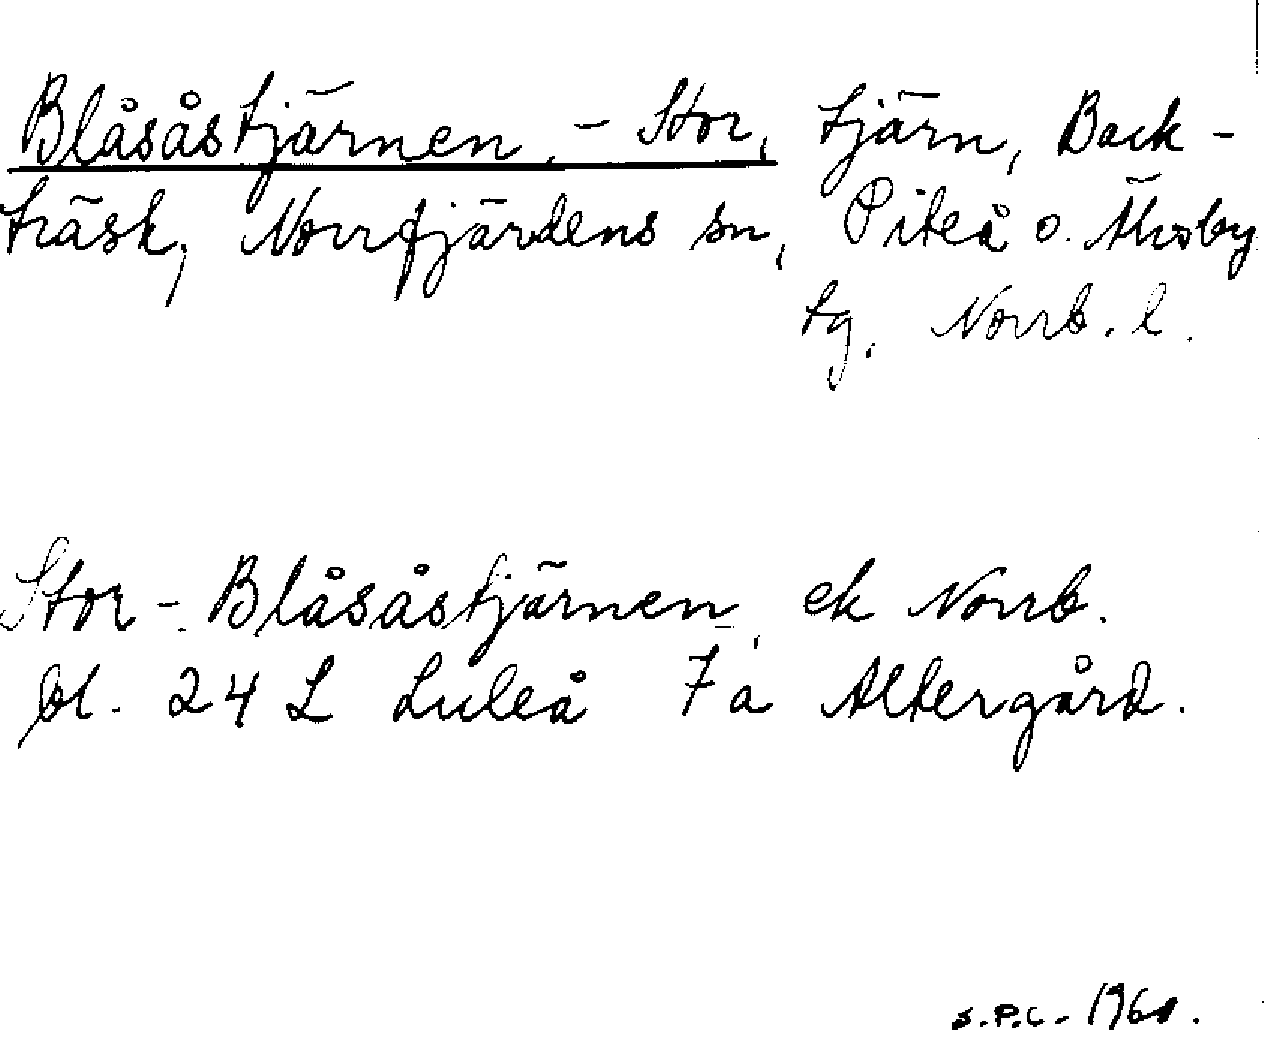 Blåsåstjärnen, - Stor, tjärn, Back-
träsk, Norrfjärdens sn, Piteå o. Älvsby
tg. Norrb. l.
Stor-Blåsåstjärnen, ek Norrb.
bl. 24 L Luleå 7 a Altergård.
S.P.C. 1960.